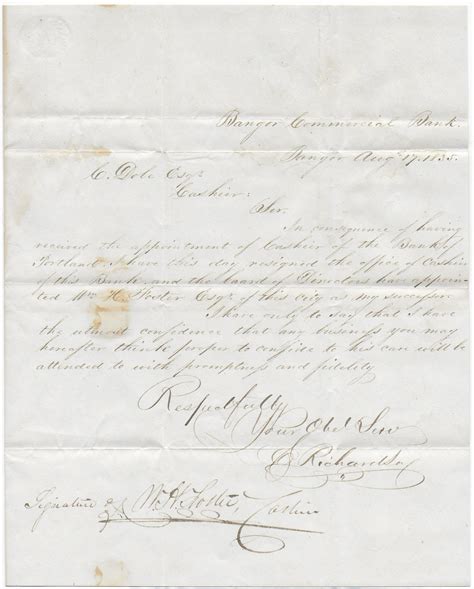 Bangor Commercial Bank.
Bangor Augt 17. 1835.
C. Dole Esqr
Cashier.
Sir.
In consequence of having
received the appointment of Cashier of the Bank of
Portland I have this day resigned the office of Cashier
of this Bank and the board of Directors have appoin-
ted Wm H. Foster Esqr of this city as my successor
I have only to say that I have
the utmost confidence that any business you may
hereafter think proper to confide to his care will be
attended to with promptness and fidelity
Respectfully
Your Obd Serv
Richardson
Signature of W. H. Foster, Cashier